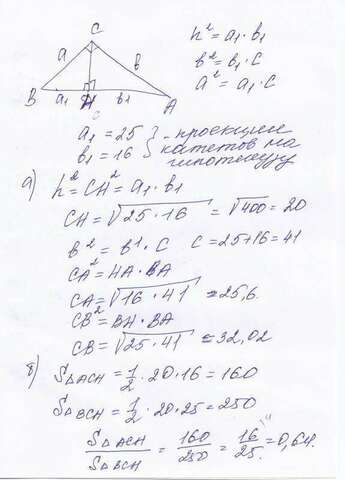 C
h² = a₁ · b₁
a
b
b² = b₁ · C
a² = a₁ · C
B a₁ H b₁ A
a₁ = 25 } - проекции
b₁ = 16 } катетов на
гипотенузу
а) h² = CH² = a₁ · b₁
CH = √25 · 16 = √400 = 20
b² = b¹ · C C = 25 + 16 = 41
CA² = HA · BA
CA = √16 · 41 ≈ 25,6
CB² = BH · BA
CB = √25 · 41 ≈ 32,02
в) S△ACH = 1/2 · 20 · 16 = 160
S△BCH = 1/2 · 20 · 25 = 250
S△ACH / S△BCH = 160/250 = 16/25 = 0,64.